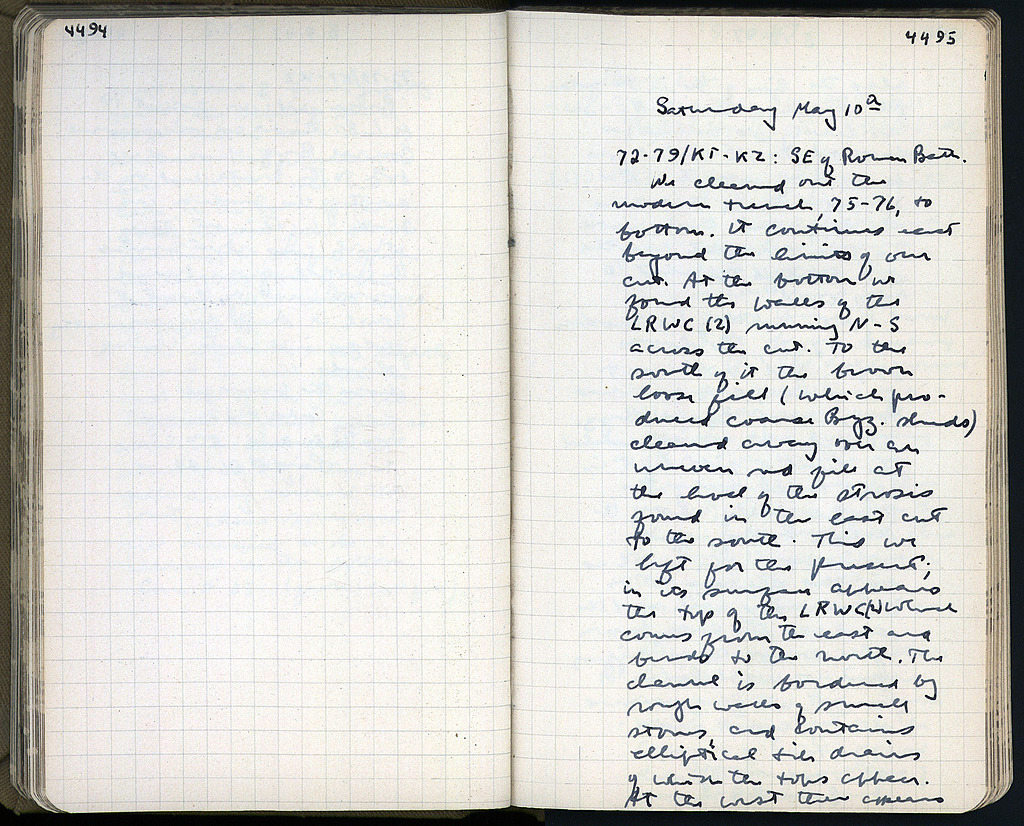 4494
4495
Saturday May 10th
72-79/KT-KZ: SE of Roman Bath.
We cleaned out the
modern trench, 75-76, to
bottom. It continues east
beyond the limits of our
cut. At the bottom we
found the walls of the
LRWC (2) running N-S
across the cut. To the
south of it the brown
loose fill (which pro-
duced coarse Byz. sherds)
cleaned away over an
uneven red fill at
the level of the strosis
found in the east cut
to the south. This we
left for the present;
in its surface appears
the top of the LRWC which
comes from the east and
bends to the north. The
channel is bordered by
rough walls of small
stones, and contains
elliptical tile drains
of which the tops appear.
At the west there appears